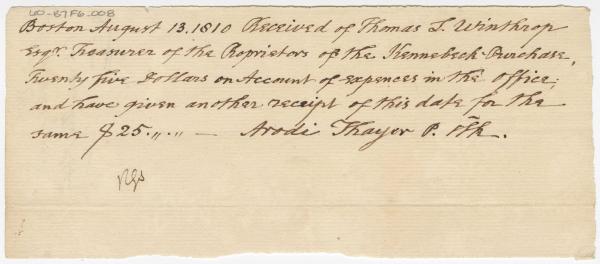 40-87F6.008
Boston August 13. 1810 Received of Thomas L. Winthrop
Esqr. Treasurer of the Proprietors of the Kennebeck Purchase,
Twenty five Dollars on Account of expences in the office;
and have given another receipt of this date for the
same $25.,,.,, — Arodi Thayer P. Clk.